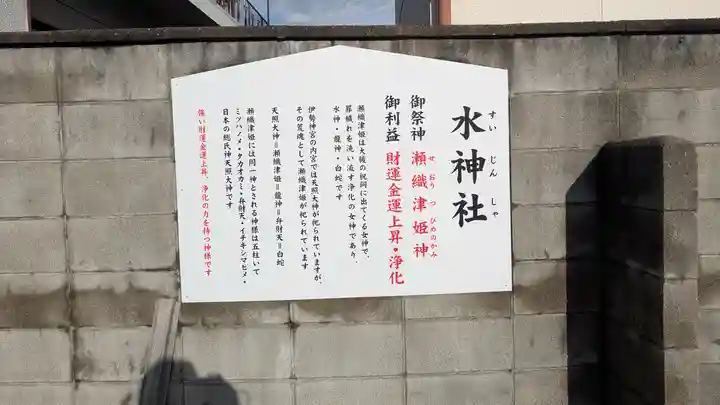 水神社
すいじんしゃ
御祭神 瀬織津姫神
せおりつひめのかみ
御利益 財運金運上昇・浄化
瀬織津姫は大祓の祝詞に出てくる女神で、
罪穢れを洗い流す浄化の女神であり、
水神・龍神・白蛇です
伊勢神宮の内宮では天照大神が祀られていますが、
その荒魂として瀬織津姫が祀られています
天照大神=瀬織津姫=龍神=弁財天=白蛇
瀬織津姫には同一神とされる神様は五柱いて
ミツハノメ・タカオカミ・弁財天・イチキシマヒメ・
日本の総氏神天照大神です
強い財運金運上昇、浄化の力を持つ神様です